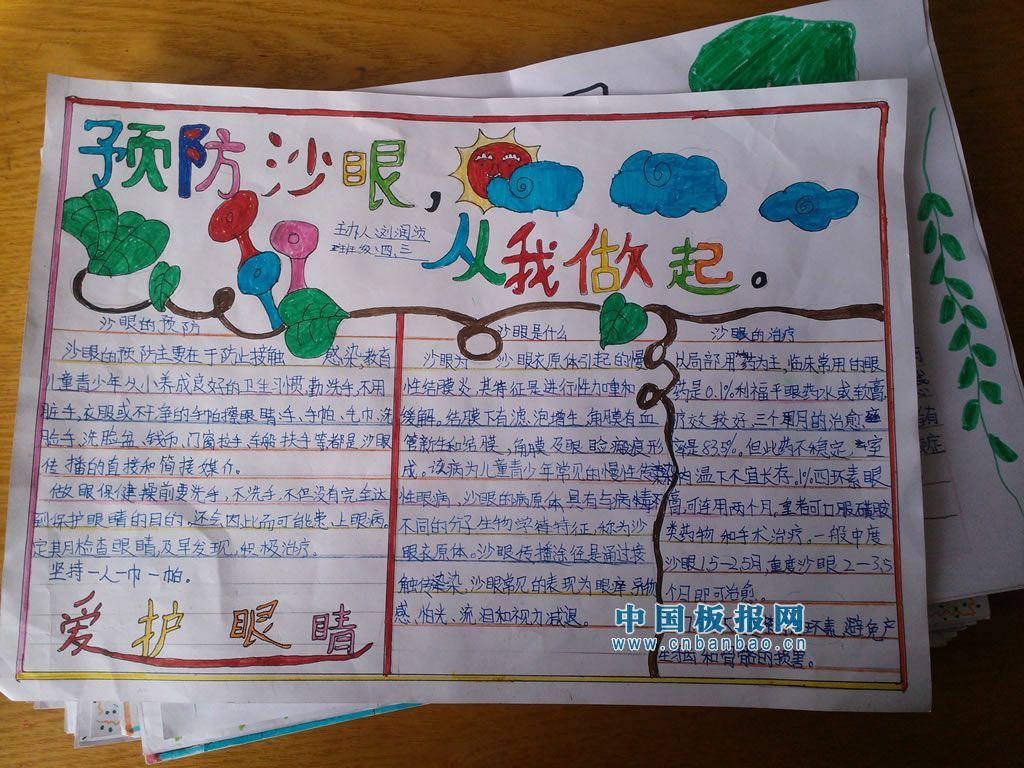 预防沙眼，
从我做起。
主办人
班级 四、三
沙眼的预防
沙眼的预防主要在于防止接触 感染，教育
儿童青少年从小养成良好的卫生习惯，勤洗手，不用
脏手、衣服或不干净的手帕擦眼睛，手、手帕、毛巾、洗
脸手、洗脸盆、钱币、门窗扶手、车船扶手等都是沙眼
传播的直接和简接媒介。
做眼保健操前要洗手，不洗手，不但没有完全达
到保护眼睛的目的，还会因此而可能患上眼病。
定期检查眼睛，及早发现，积极治疗。
坚持一人一巾一帕。
爱护眼睛
沙眼是什么
沙眼为 沙眼衣原体引起的慢
性结膜炎，其特征是进行性加重和
缓解。结膜下有滤泡增生，角膜有血
管新生和 膜，角膜及眼睑瘢痕形
成。该病为儿童青少年常见的慢性传染
性眼病，沙眼的病原体具有与病
不同的分子生物学特征，称为沙
眼衣原体。沙眼传播途径是通过接
触传染染，沙眼常见的表现为眼痒、异物
感、怕光、流泪和视力减退。
沙眼的治疗
以局部用药为主，临床常用的眼
药是0.1%利福平眼药水或软膏，
效较好，三个月的治愈
率是83.5%。但此药不稳定，室
内温下不宜长存。1%四环素眼
膏，可连用两个月，重者可口服磺胺
类药物和手术治疗。一般中度
沙眼1.5—2.5月，重度沙眼2—3.5
个月即可治愈。
环素，避免产
和骨骼的损害。
中国板报网
www.cnbanbao.cn